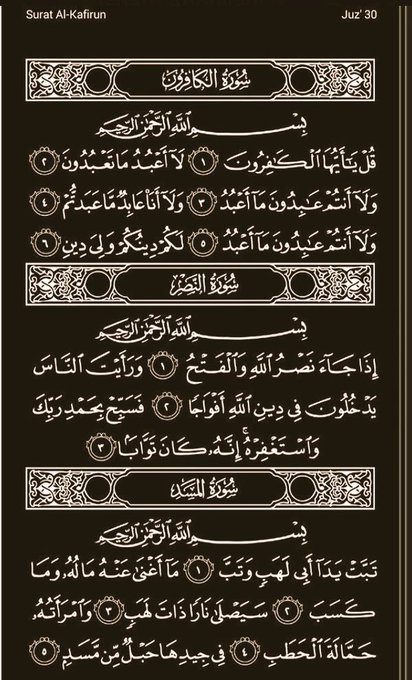 Surat Al-Kafirun Juz' 30
سُورَةُ الكَافِرُونَ
بِسْمِ ٱللَّهِ ٱلرَّحْمَٰنِ ٱلرَّحِيمِ
قُلْ يَٰٓأَيُّهَا ٱلْكَٰفِرُونَ ١ لَآ أَعْبُدُ مَا تَعْبُدُونَ ٢
وَلَآ أَنتُمْ عَٰبِدُونَ مَآ أَعْبُدُ ٣ وَلَآ أَنَا۠ عَابِدٌ مَّا عَبَدتُّمْ ٤
وَلَآ أَنتُمْ عَٰبِدُونَ مَآ أَعْبُدُ ٥ لَكُمْ دِينُكُمْ وَلِيَ دِينِ ٦
سُورَةُ النَّصْرِ
بِسْمِ ٱللَّهِ ٱلرَّحْمَٰنِ ٱلرَّحِيمِ
إِذَا جَآءَ نَصْرُ ٱللَّهِ وَٱلْفَتْحُ ١ وَرَأَيْتَ ٱلنَّاسَ
يَدْخُلُونَ فِي دِينِ ٱللَّهِ أَفْوَاجًا ٢ فَسَبِّحْ بِحَمْدِ رَبِّكَ
وَٱسْتَغْفِرْهُ ۚ إِنَّهُۥ كَانَ تَوَّابًۢا ٣
سُورَةُ المَسَدِ
بِسْمِ ٱللَّهِ ٱلرَّحْمَٰنِ ٱلرَّحِيمِ
تَبَّتْ يَدَآ أَبِي لَهَبٍ وَتَبَّ ١ مَآ أَغْنَىٰ عَنْهُ مَالُهُۥ وَمَا
كَسَبَ ٢ سَيَصْلَىٰ نَارًا ذَاتَ لَهَبٍ ٣ وَٱمْرَأَتُهُۥ
حَمَّالَةَ ٱلْحَطَبِ ٤ فِي جِيدِهَا حَبْلٌ مِّن مَّسَدٍۭ ٥